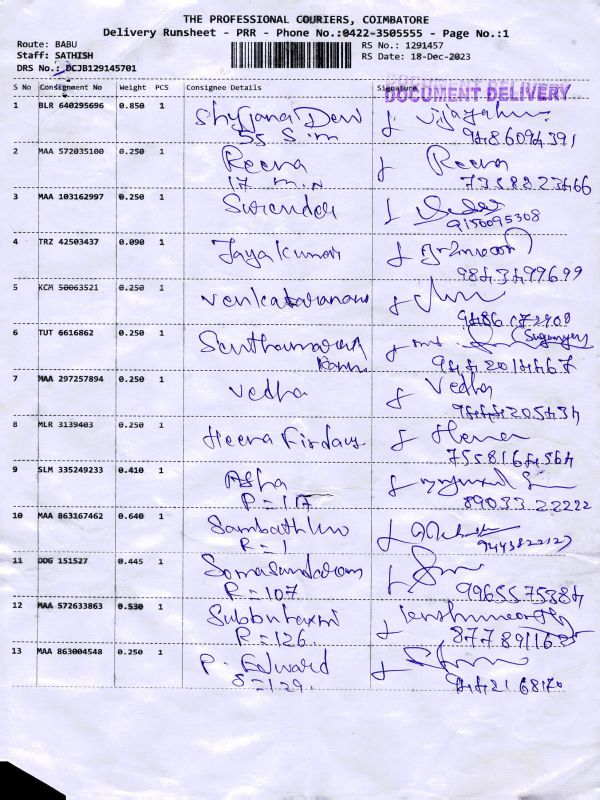 THE PROFESSIONAL COURIERS, COIMBATORE
Delivery Runsheet - PRR - Phone No.:0422-3505555 - Page No.:1
Route: BABU RS No.: 1291457
Staff: SATHISH RS Date: 18-Dec-2023
DRS No.: DCJB129145701
DOCUMENT DELIVERY
S No Consignment No Weight PCS Consignee Details Signature
DOCUMENT DELIVERY
1 BLR 640295696 0.850 1 Devi
55 S.m 9486094391
2 MAA 572035100 0.250 1 Reena Reena
17 m.n 7358823466
3 MAA 103162997 0.250 1 Surender
9150095308
4 TRZ 42503437 0.090 1 Jayakumar
9843499699
5 KCM 50063521 0.250 1
6 TUT 6616862 0.250 1
9442014467
7 MAA 297257894 0.250 1 Vedha Vedha
9444205434
8 MLR 3139403 0.250 1 Heena Firdaus Heena
7558164564
9 SLM 335249233 0.410 1 Asha
P=117 89033 22222
10 MAA 863167462 0.640 1
R=1 9443822127
11 DDG 151527 0.445 1 Somasundaram
R=107 9965575384
12 MAA 572633863 0.530 1 Subbulaxmi
R=126
13 MAA 863004548 0.250 1 P. Edward
S=129. 9442168170